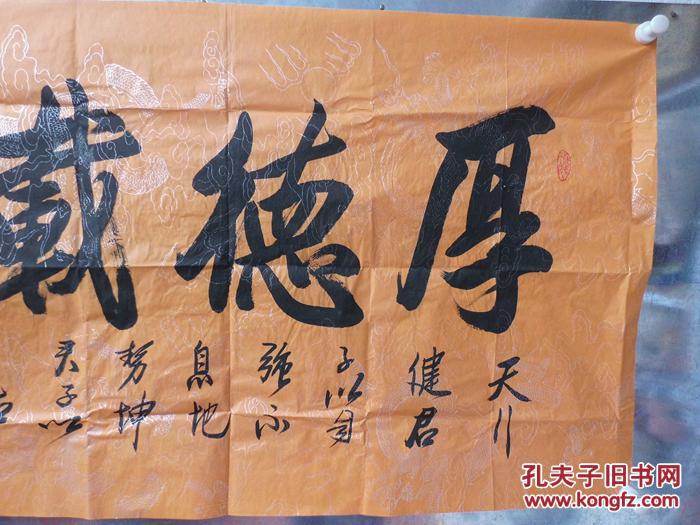 厚德載
天行
健君
子以自
强不
息地
势坤
君子以
孔夫子旧书网
www.kongfz.com